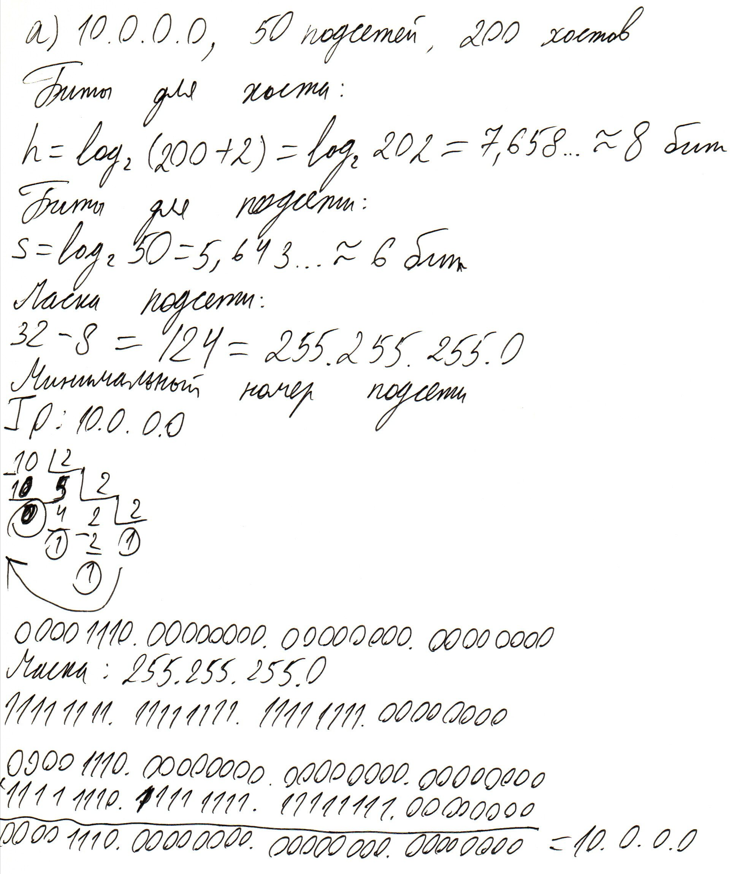 а) 10.0.0.0, 50 подсетей, 200 хостов
Биты для хоста:
h = log₂ (200+2) = log₂ 202 = 7,658... ≈ 8 бит
Биты для подсети:
s = log₂ 50 = 5,643... ≈ 6 бит
Маска подсети:
32 - 8 = /24 = 255.255.255.0
Минимальный номер подсети
IP: 10.0.0.0
-10 | 2
10 5 | 2
0 4 2 | 2
1 -2 1
1
00001110. 00000000. 00000000. 00000000
Маска: 255.255.255.0
11111111. 11111111. 11111111. 00000000
00001110. 00000000. 00000000. 00000000
11111110. 11111111. 11111111. 00000000
00001110. 00000000. 00000000. 00000000 = 10.0.0.0